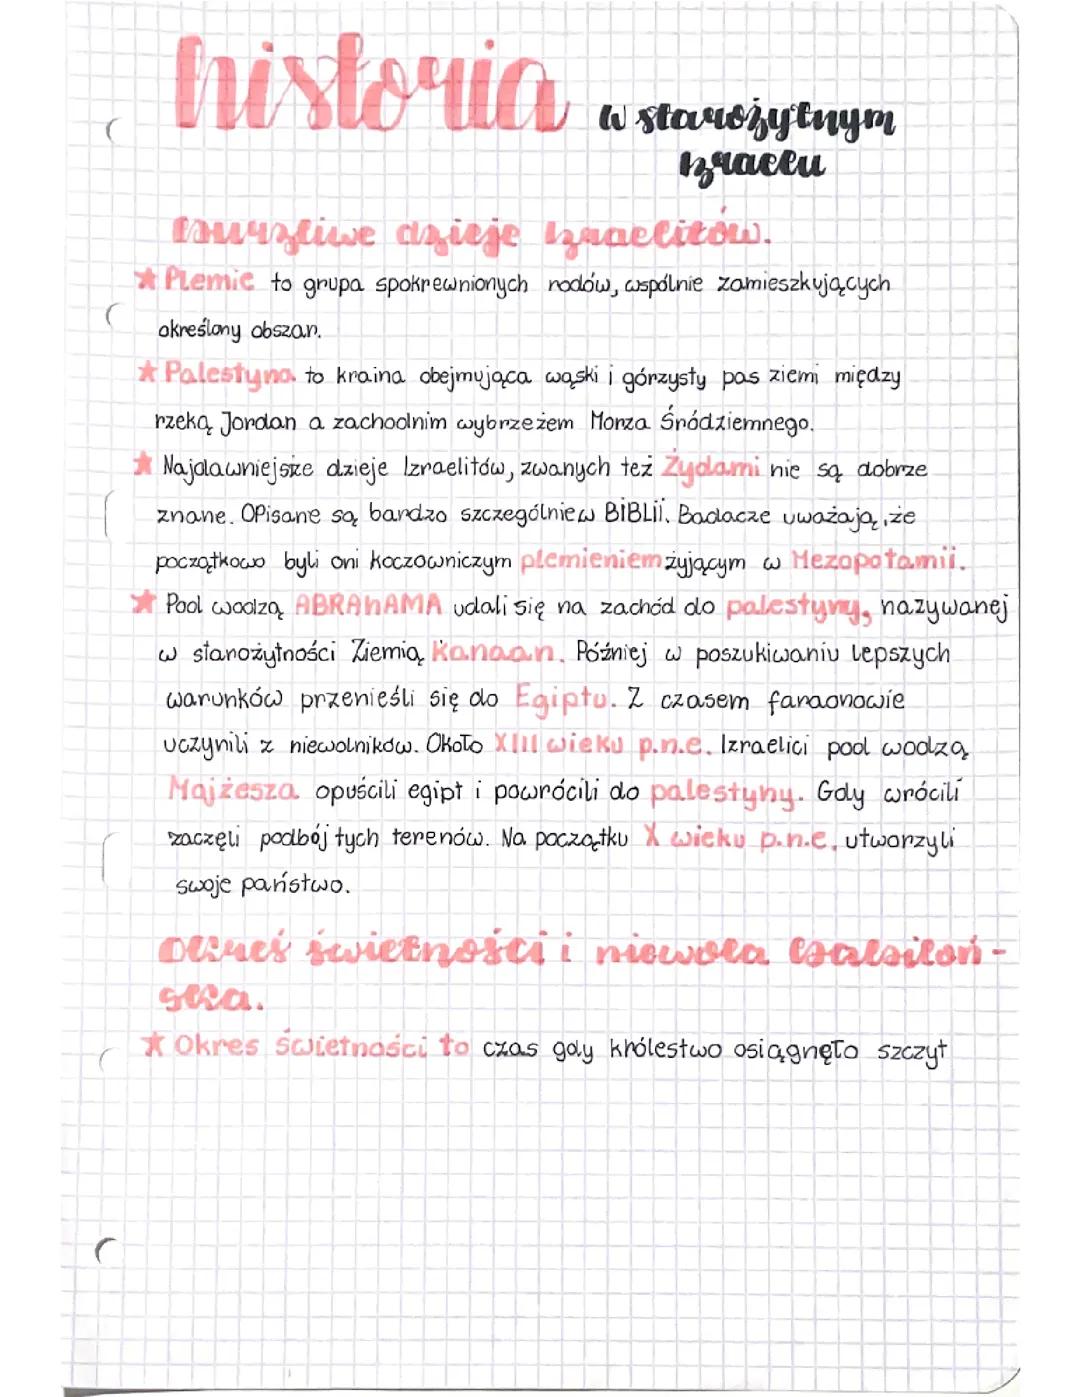 historia w starożytnym
Izraelu
Burzliwe dzieje Izraelitów.
★ Plemie to grupa spokrewnionych rodów, wspólnie zamieszkujących
określony obszar.
★ Palestyna to kraina obejmująca wąski i górzysty pas ziemi między
rzeką Jordan a zachodnim wybrzeżem Morza Śródziemnego.
★ Najdawniejsze dzieje Izraelitów, zwanych też Żydami nie są dobrze
znane. OPisane są bardzo szczególnie w BiBLii. Badacze uważają, że
początkowo byli oni koczowniczym plemieniem żyjącym w Mezopotamii.
★ Pod wodzą ABRAhAMA udali się na zachód do palestyny, nazywanej
w starożytności Ziemią Kanaan. Później w poszukiwaniu lepszych
warunków przenieśli się do Egiptu. Z czasem faraonowie
uczynili z niewolników. Około XIII wieku p.n.e. Izraelici pod wodzą
Majżesza opuścili egipt i powrócili do palestyny. Gdy wrócili
zaczęli podbój tych terenów. Na początku X wieku p.n.e. utworzyli
swoje państwo.
Okres świetności i niewola babiloń-
ska.
★ Okres świetności to czas gdy królestwo osiągnęło szczyt